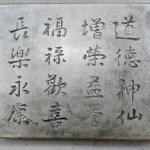 道德神仙
增榮益富
福祿歡喜
長樂永康